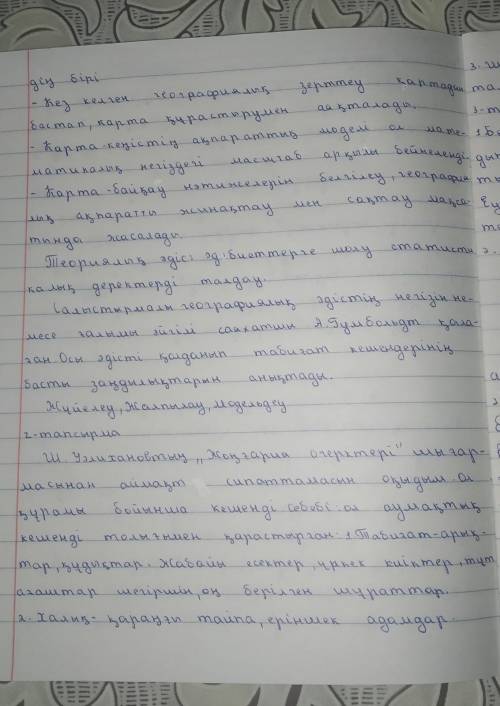 дің бірі
- Кез келген географиялық зерттеу картадан
бастап, карта құрастырумен аяқталады.
- Карта-кеңістің ақпараттық моделі ол мате-
матикалық негіздегі масштаб арқылы бейнеленеді-
- Карта-байқау нәтижелерін белгілеу, география
лық ақпаратты жинақтау мен сақтау мақса-
тында жасалады.
Теориялық әдіс: әдебиеттерге шолу статисти
калық деректерді талдау.
Салыстырмалы географиялық әдістің негізін не-
месе ғалымы әйгілі саяхатшы А.Гумбольдт қала-
ған. Осы әдісті қолданып табиғат кешендерінің
басты заңдылықтарын анықтады.
Жүйелеу, Жалпылау, Модельдеу
2-тапсырма
Ш. Уәлихановтың „Жоңғария очерктері" шығар-
масынан аймақт сипаттамасын оқыдым. ол
құрамы бойынша кешенді себебі ол аумақтық
кешенді толығымен қарастырған: 1. Табиғат-арық-
тар, құдықтар. Жабайы есектер, үркек киіктер, тұт
ағаштар шегіршін, оң берілген шұраттар.
2. Халық- қараңғы тайпа, еріншек адамдар.
3. Ш
та.
3-т
1. Б
ды
ты
то
2.
а